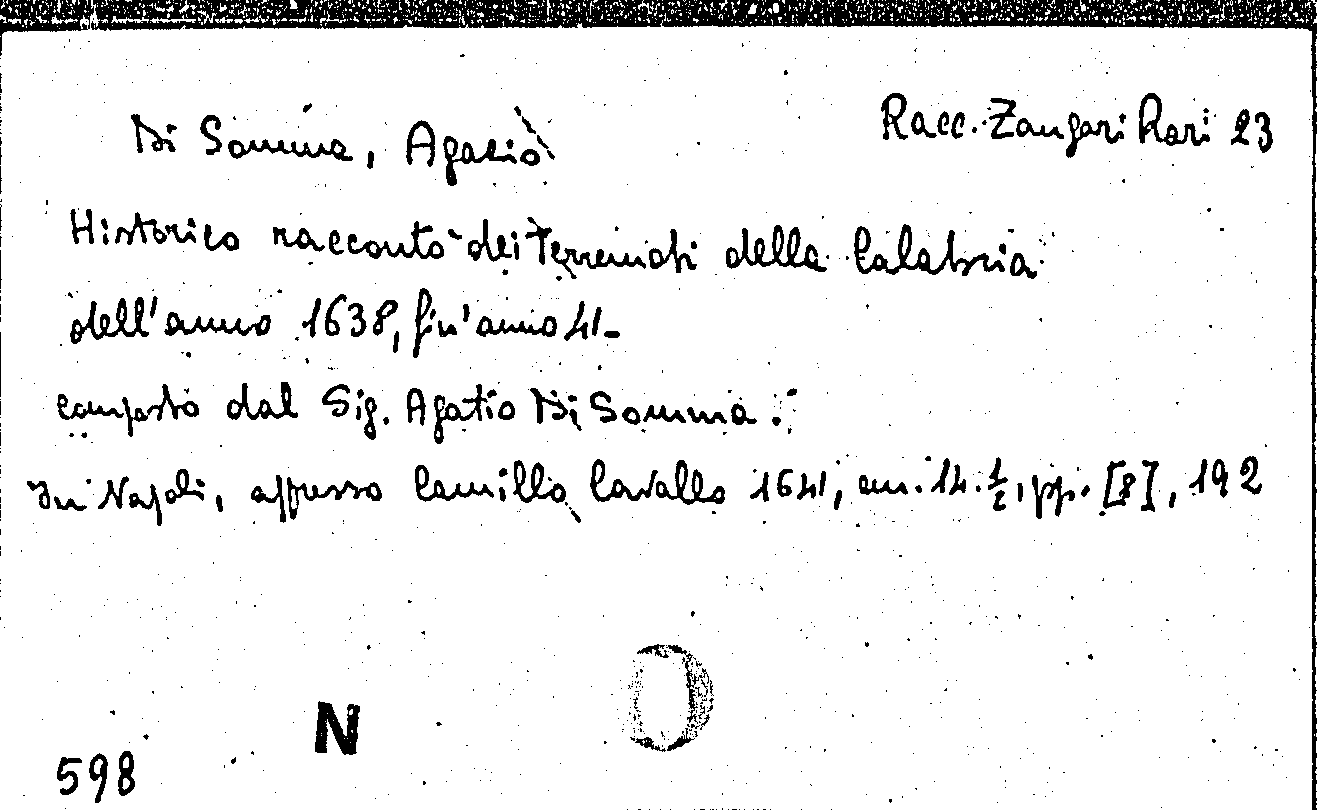 Racc. Zangari Rari 23
Di Somma, Agazio
Historico racconto dei Terremoti della Calabria
dell'anno 1638, fin'anno 41-
composto dal Sig. Agatio Di Somma.
In Napoli, appresso Camillo Cavallo 1641, cm. 14.½, pp. [8], 192
N
O
598